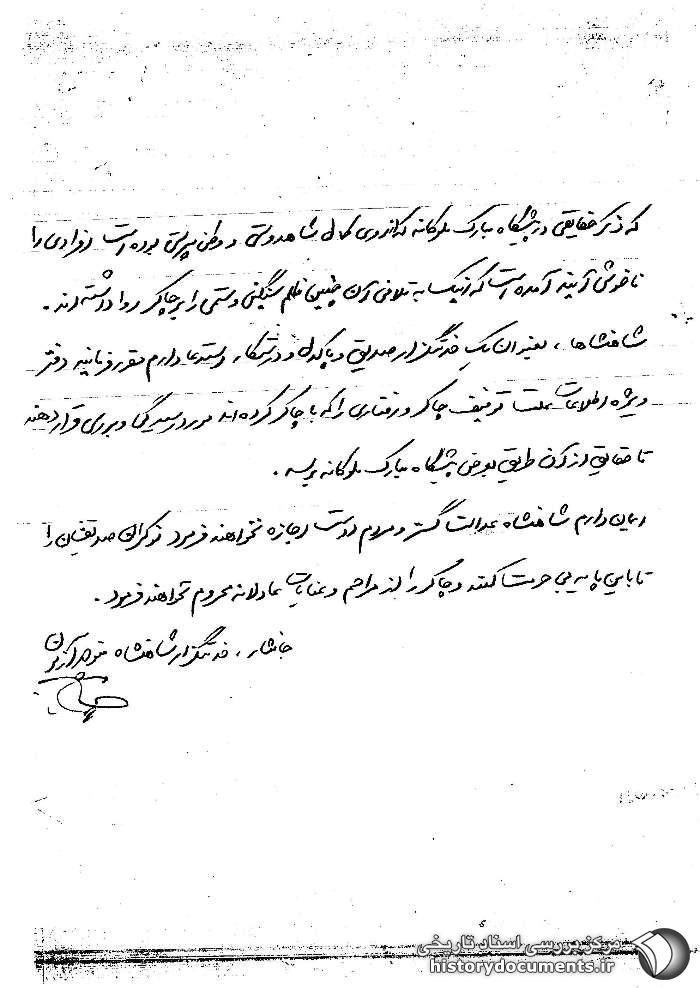 که ذکر حقایقی در پیشگاه مبارک ملوکانه که از روی کمال شاهدوستی و وطن پرستی بوده است افرادی را
ناخوش آیند آمده است که اینک به تلافی آن چنین ظلم سنگین و ستمی را بر چاکر روا داشته اند .
شاهنشاها ، بعنوان یک خدمتگزار صدیق و پاکدل و درستکار استدعا دارم مقرر فرمایند دفتر
ویژه اطلاعات علت توقیف چاکر و رفتاری را که با چاکر کرده اند مورد رسیدگی و بررسی قرار دهند
تا حقایق از آن طریق بعرض پیشگاه مبارک ملوکانه برسد .
ایمان دارم شاهنشاه عدالت گستر و مردم دوست اجازه نخواهند فرمود نوکران صدیقشان را
تا باین پایه بی حرمت کنند و چاکر را از مراحم و عنایات عادلانه محروم نخواهند فرمود .
جانثار ، خدمتگزار شاهنشاه منوچهر آزمون
مرکز بررسی اسناد تاریخی
historydocuments.ir